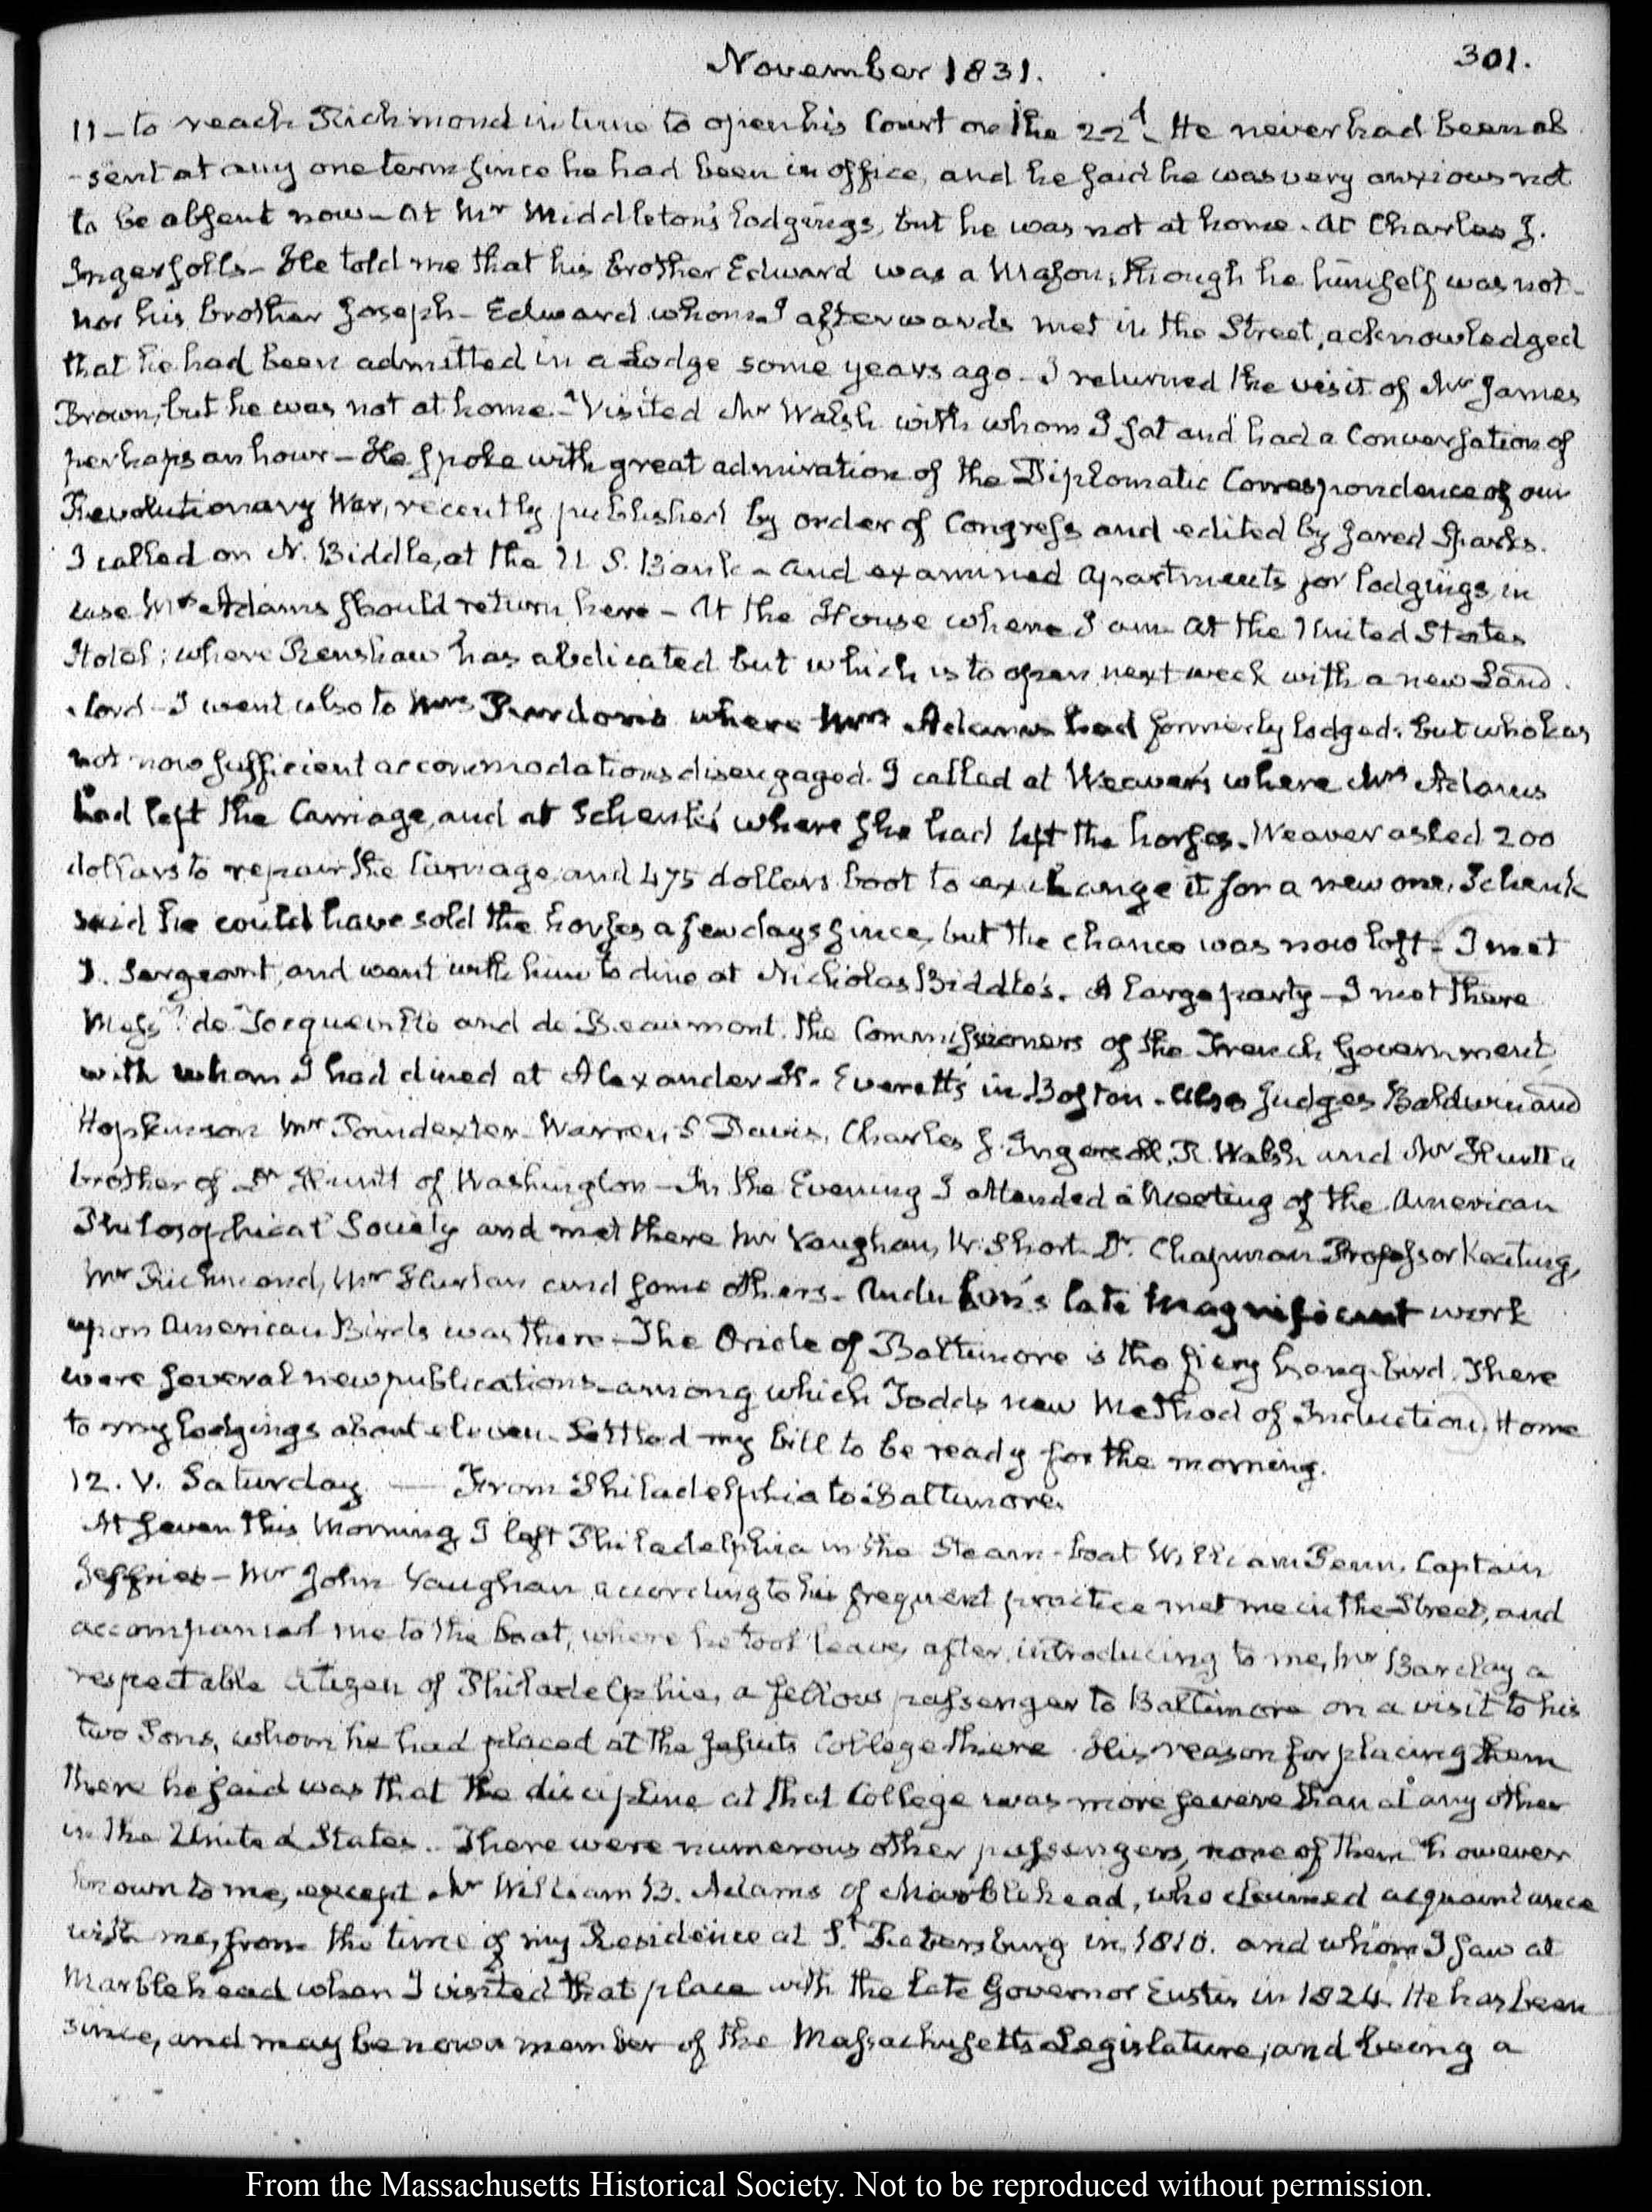 November 1831.
301.
11 – to reach Richmond in time to open his Court on the 22d. He never had been ab
-sent at any one term since he had been in office, and he said he was very anxious not
to be absent now – At Mr Middleton's lodgings, but he was not at home. At Charles J.
Ingersoll's – He told me that his brother Edward was a Mason; though he himself was not –
nor his brother Joseph – Edward whom I afterwards met in the Street, acknowledged
that he had been admitted in a Lodge some years ago – I returned the visit of Mr James
Brown, but he was not at home. – Visited Mr Walsh with whom I sat and had a Conversation of
perhaps an hour – He spoke with great admiration of the Diplomatic Correspondence of our
Revolutionary War, recently published by order of Congress and edited by Jared Sparks.
I called on N. Biddle, at the U.S. Bank – and examined apartments for lodgings, in
case Mrs Adams should return here – At the House where I am at the United States
Hotel; where Renshaw has abdicated but which is to open next week with a new Land
-lord – I went also to Mrs Purdon's where Mrs Adams had formerly lodged; but who has
not now sufficient accommodations disengaged. I called at Weaver's where Mrs Adams
had left the Carriage, and at Schenk's where she had left the horses. Weaver asked 200
dollars to repair the Carriage, and 475 dollars boot to exchange it for a new one, Schenk
said he could have sold the horses a few days since, but the chance was now lost – I met
J. Sergeant, and went with him to dine at Nicholas Biddle's. A large party – I met there
Messrs de Tocqueville and de Beaumont. the Commissioners of the French Government,
with whom I had dined at Alexander H. Everett's in Boston – Also Judges Baldwin and
Hopkinson Mr Poindexter – Warren R. Davis, Charles J. Ingersoll, R. Walsh and Mr Huntt a
brother of Dr Huntt of Washington – In the Evening I attended a Meeting of the American
Philosophical Society and met there Mr Vaughan, W. Short – Dr. Chapman Professor Keating,
Mr Richmond, Mr Harlan and some others – Audubon's late magnificent work
upon American Birds was there – The Oriole of Baltimore is the fiery hang-bird. There
were several new publications – among which Todd's new Method of Induction. Home
to my lodgings about eleven. Settled my bill to be ready for the morning.
12. V. Saturday — From Philadelphia to Baltimore.
At seven this Morning, I left Philadelphia in the Steam-boat William Penn. Captain
Jeffries – Mr John Vaughan according to his frequent practice met me in the Street, and
accompanied me to the boat, where he took leave, after introducing to me, Mr Barclay a
respectable Citizen of Philadelphia, a fellow passenger to Baltimore on a visit to his
two Sons, whom he had placed at the Jesuits College there. His reason for placing them
there he said was that the discipline at that College was more severe than at any other
in the United States. There were numerous other passengers, none of them however
known to me, except Mr William B. Adams of Marblehead, who claimed acquaintance
with me, from the time of my Residence at St Petersburg in 1810. and whom I saw at
Marblehead when I visited that place with the late Governor Eustis in 1824. He has been
since, and may be now a member of the Massachusetts Legislature; and being a
From the Massachusetts Historical Society. Not to be reproduced without permission.